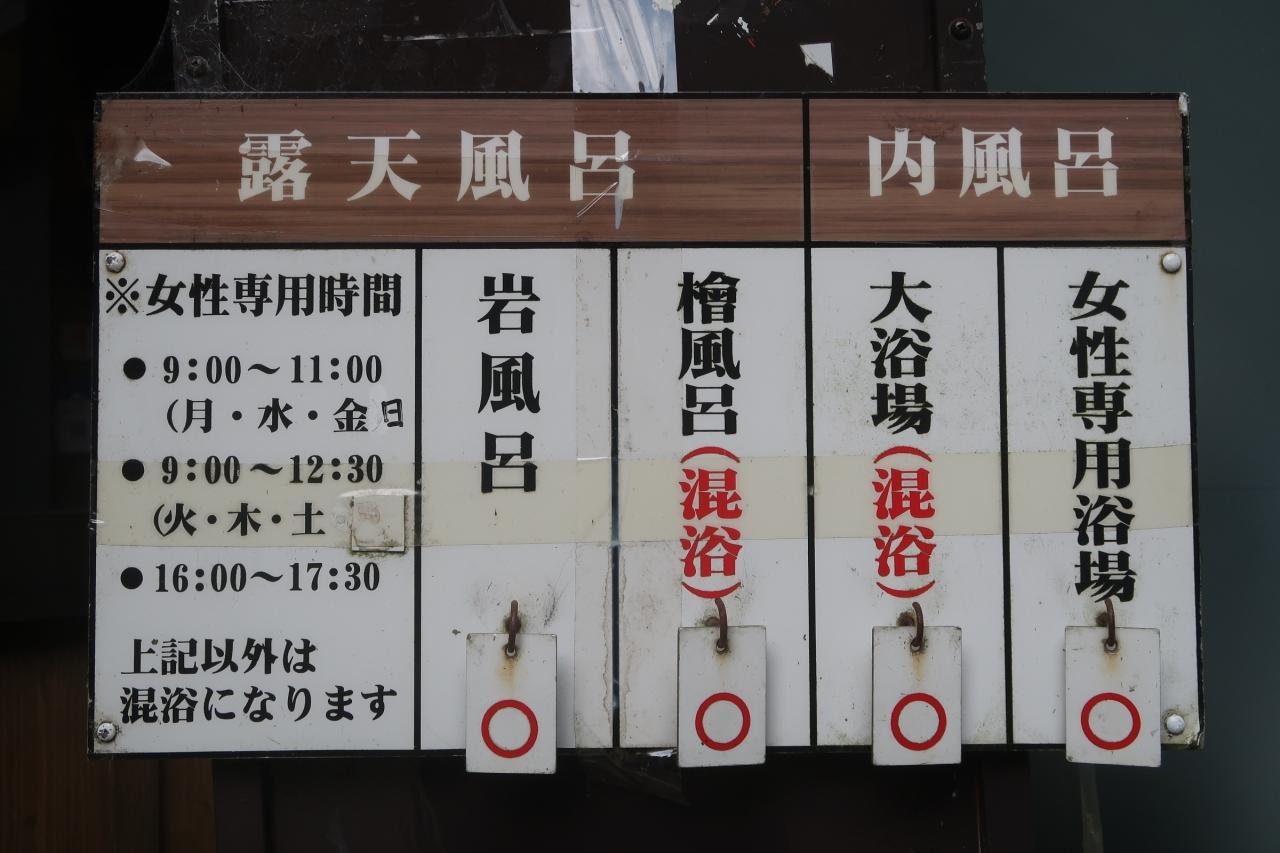 露天風呂
内風呂
※女性専用時間
● 9:00～11:00
(月・水・金日
● 9:00～12:30
(火・木・土
●16:00～17:30
上記以外は
混浴になります
岩風呂
檜風呂(混浴)
大浴場(混浴)
女性専用浴場
○
○
○
○